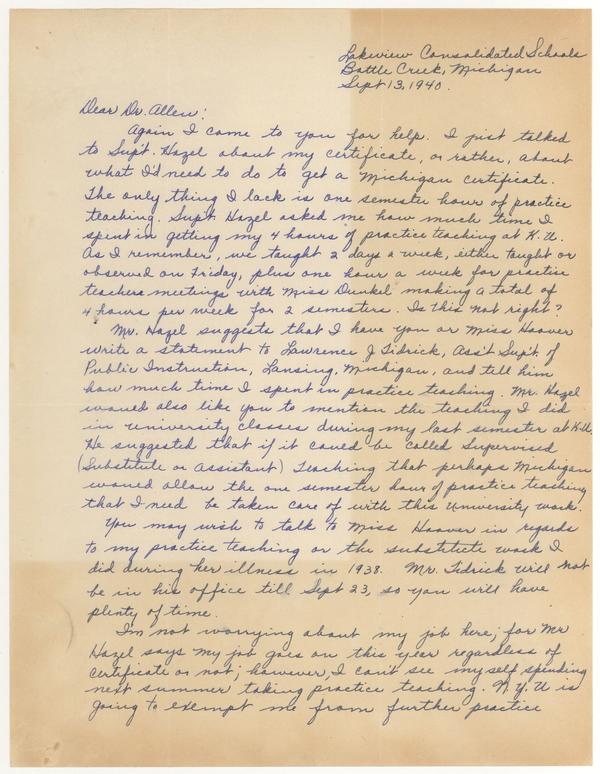 Lakeview Consolidated Schools
Battle Creek, Michigan
Sept 13, 1940.
Dear Dr. Allen:
Again I come to you for help. I just talked
to Sup't. Hazel about my certificate, or rather, about
what I'd need to do to get a Michigan certificate.
The only thing I lack is one semester hour of practice
teaching. Sup't. Hazel asked me how much time I
spent in getting my 4 hours of practice teaching at K.U.
As I remember, we taught 2 days a week, either taught or
observed on Friday, plus one hour a week for practice
teachers meetings with Miss Dunkel making a total of
4 hours per week for 2 semesters. Is this not right?
Mr. Hazel suggests that I have you or Miss Hoover
write a statement to Lawrence J Tidrick, Ass't Sup't. of
Public Instruction, Lansing, Michigan, and tell him
how much time I spent in practice teaching. Mr. Hazel
would also like you to mention the teaching I did
in university classes during my last semester at K.U.
He suggested that if it could be called Supervised
(Substitute or Assistant) Teaching that perhaps Michigan
would allow the one semester hour of practice teaching
that I need be taken care of with this University work.
You may wish to talk to Miss Hoover in regards
to my practice teaching or the substitute work I
did during her illness in 1938. Mr. Tidrick will not
be in his office till Sept 23, so you will have
plenty of time.
I'm not worrying about my job here; for Mr
Hazel says my job goes on this year regardless of
certificate or not; however, I can't see myself spending
next summer taking practice teaching. N.Y.U is
going to exempt me from further practice